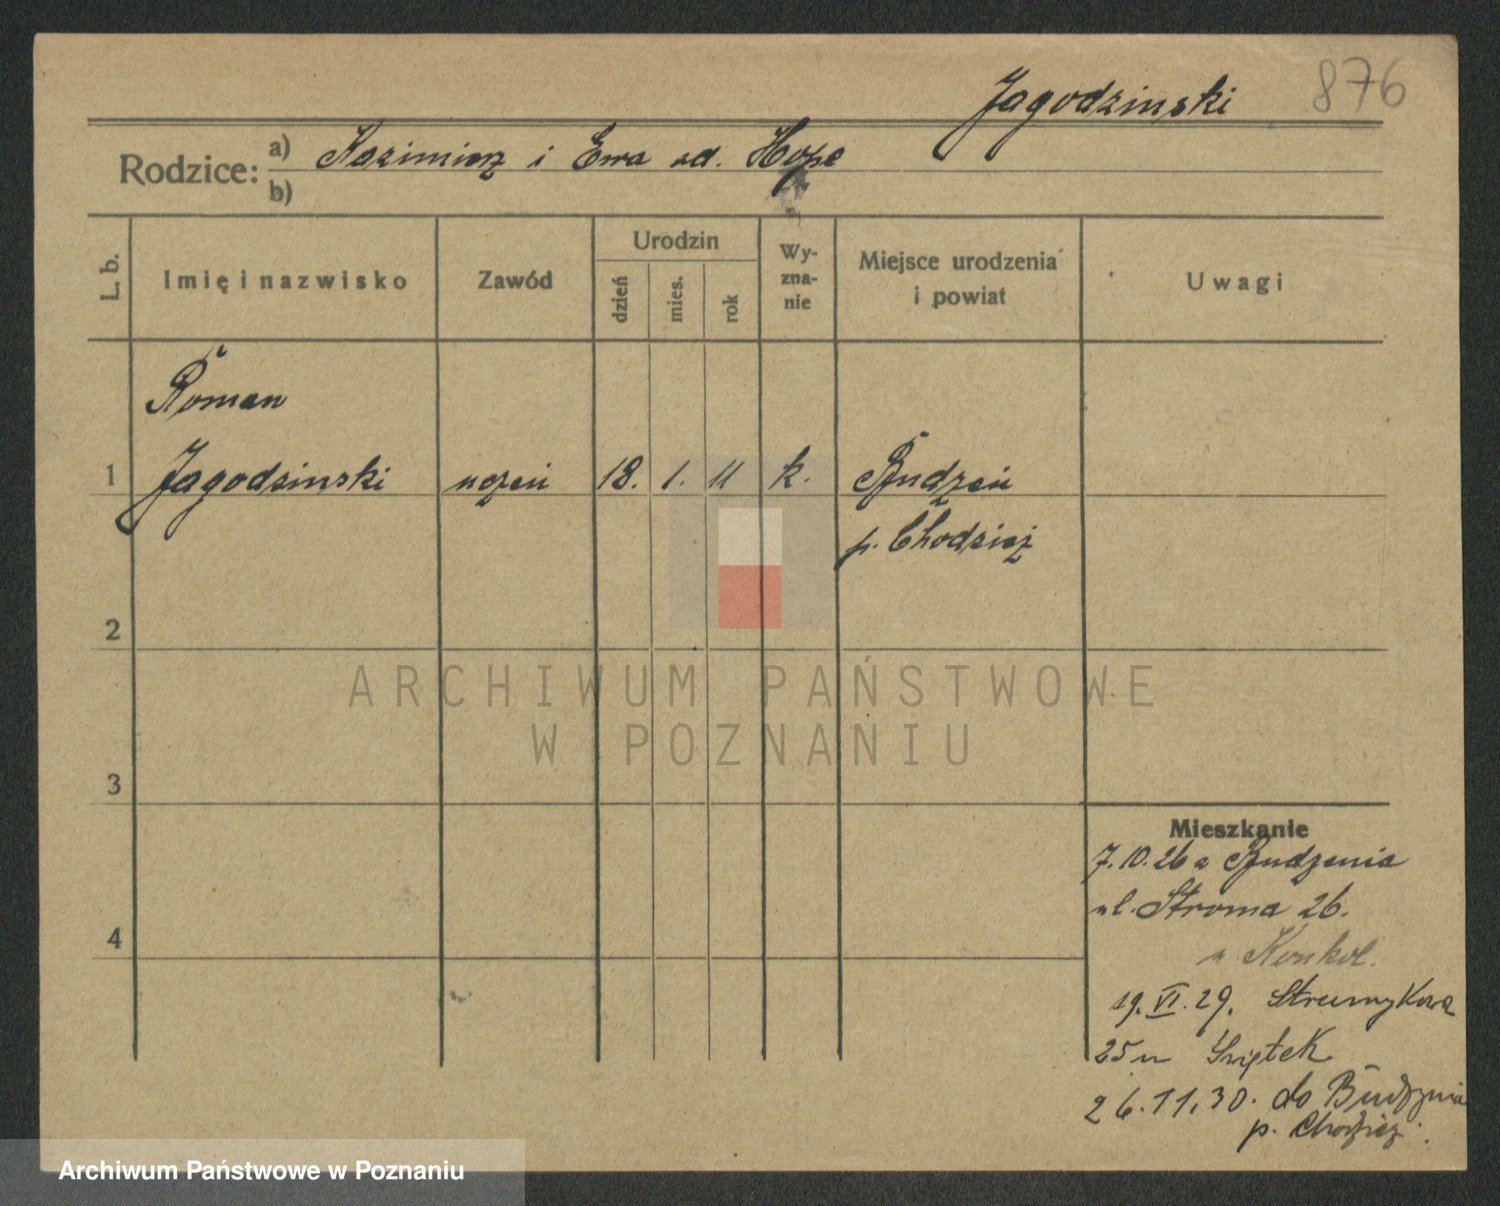 876
Jagodzinski
Rodzice:
a) Kazimierz i Ewa zd. Hope
b)
L. b.
Imię i nazwisko
Zawód
Urodzin
dzień
mies.
rok
Wy-
zna-
nie
Miejsce urodzenia
i powiat
Uwagi
Roman
1 Jagodzinski uczeń 18. 1. 11 k. Budzeń
p. Chodzież
2
3
4
Mieszkanie
7.10.26 z Budzenia
ul. Stroma 26.
u Konkol.
19. VI. 29. Strumykowa
25 u Świętek
26.11.30. do Budzynia
p. Chodzież.
ARCHIWUM PAŃSTWOWE
W POZNANIU
Archiwum Państwowe w Poznaniu